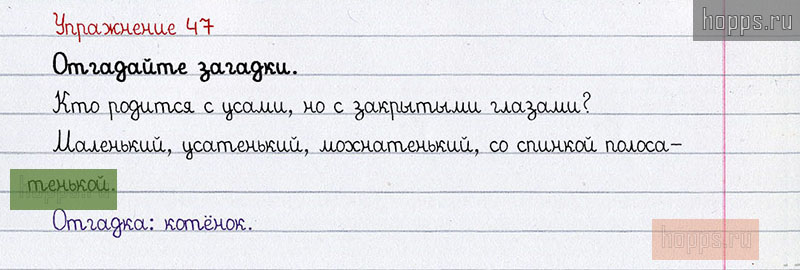 Упражнение 47
hopps.ru
Отгадайте загадки.
Кто родится с усами, но с закрытыми глазами?
Маленький, усатенький, мохнатенький, со спинкой полоса-
тенькой.
Отгадка: котёнок.
hopps.ru